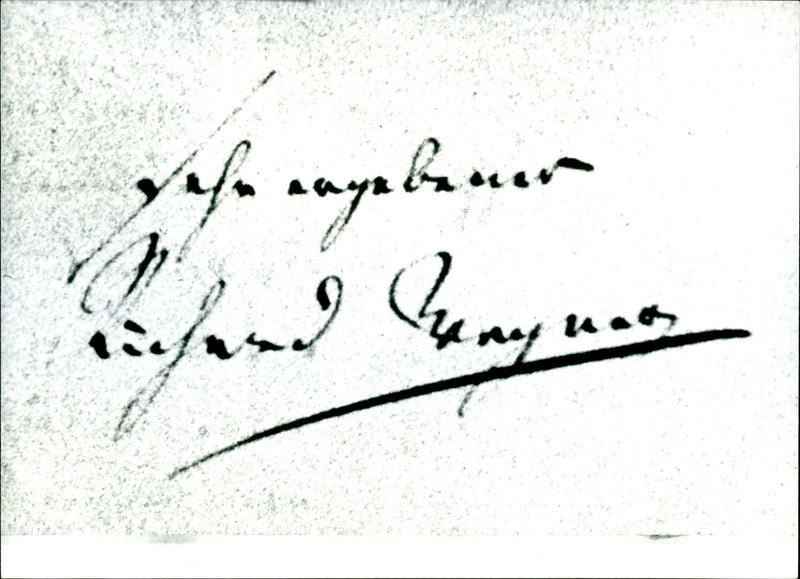 sehr ergebener
Richard Wagner